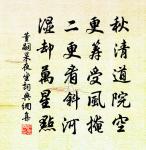 秋清道院空
更籌受風掩
二更看斜河
濕却萬星點
董嗣杲夜坐詞典網集